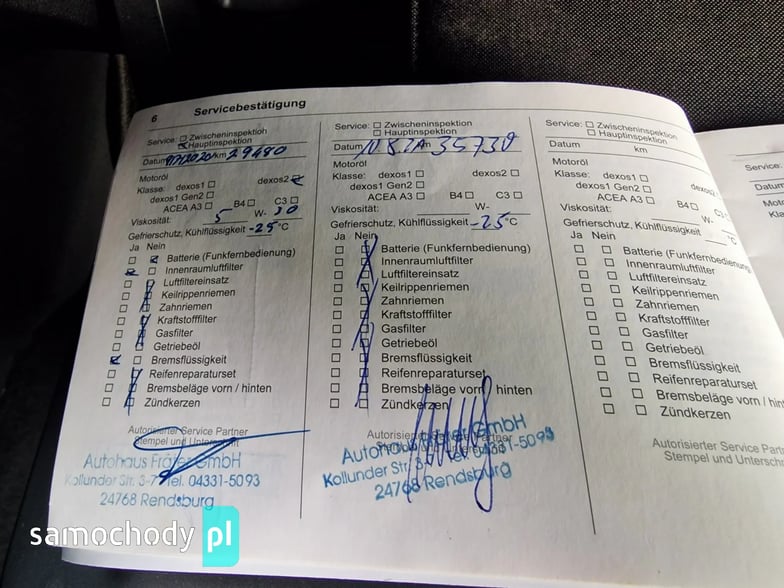 6 Servicebestätigung
Service: Zwischeninspektion
Hauptinspektion
Datum km 29480
Motoröl
Klasse: dexos1 dexos2
dexos1 Gen2
ACEA A3 B4 C3
Viskosität: 5 W- 30
Gefrierschutz, Kühlflüssigkeit -25 °C
Ja Nein
Batterie (Funkfernbedienung)
Innenraumluftfilter
Luftfiltereinsatz
Keilrippenriemen
Zahnriemen
Kraftstofffilter
Gasfilter
Getriebeöl
Bremsflüssigkeit
Reifenreparaturset
Bremsbeläge vorn / hinten
Zündkerzen
Autorisierter Service Partner
Stempel und Unterschrift
Autohaus GmbH
Kollunder Str. 3-7 Tel. 04331-5093
24768 Rendsburg
Service: Zwischeninspektion
Hauptinspektion
Datum km 35730
Motoröl
Klasse: dexos1 dexos2
dexos1 Gen2
ACEA A3 B4 C3
Viskosität: W-
Gefrierschutz, Kühlflüssigkeit -25 °C
Ja Nein
Batterie (Funkfernbedienung)
Innenraumluftfilter
Luftfiltereinsatz
Keilrippenriemen
Zahnriemen
Kraftstofffilter
Gasfilter
Getriebeöl
Bremsflüssigkeit
Reifenreparaturset
Bremsbeläge vorn / hinten
Zündkerzen
Autorisierter Service Partner
Autohaus GmbH
Kollunder Str. 3- 04331-5093
24768 Rendsburg
Service: Zwischeninspektion
Hauptinspektion
Datum km
Motoröl
Klasse: dexos1 dexos2
dexos1 Gen2
ACEA A3 B4 C3
Viskosität: W-
Gefrierschutz, Kühlflüssigkeit °C
Ja Nein
Batterie (Funkfernbedienung
Innenraumluftfilter
Luftfiltereinsatz
Keilrippenriemen
Zahnriemen
Kraftstofffilter
Gasfilter
Getriebeöl
Bremsflüssigkeit
Reifenreparaturset
Bremsbeläge vorn / hint
Zündkerzen
Autorisierter Service Partn
Stempel und Untersch
Service:
Datum
Moto
Kla
samochody pl